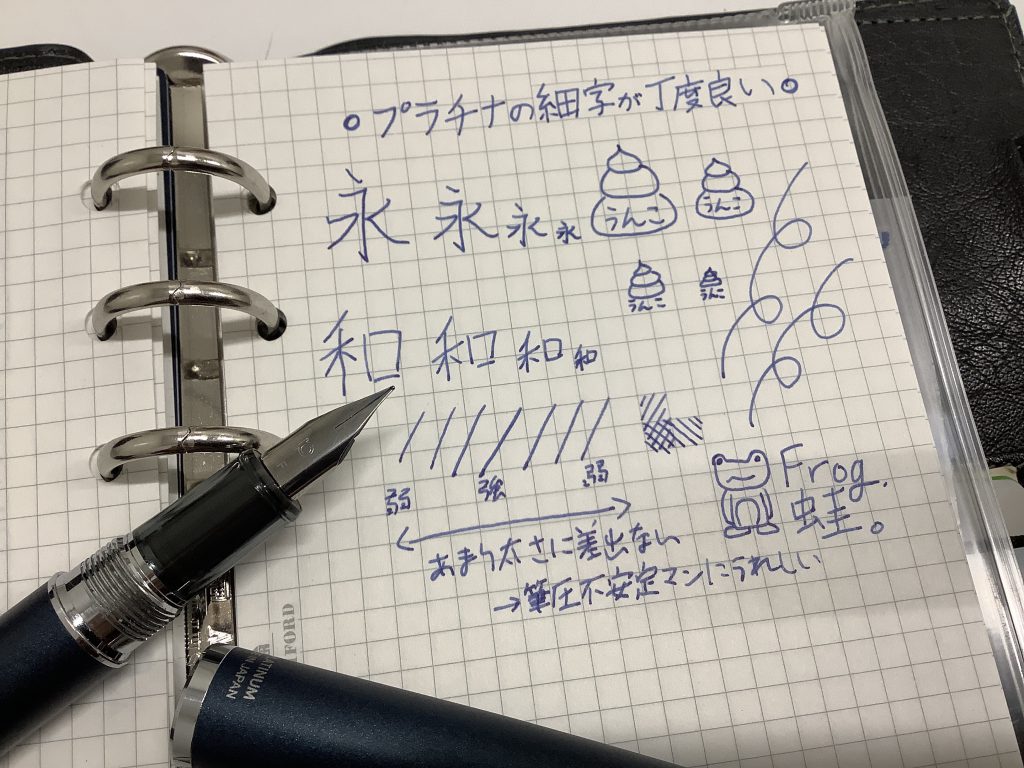 ○プラチナの細字が丁度良い○
永 永 永 永
うんこ うんこ
うんこ うんこ
和 和 和 和
弱 強 弱
Frog.
蛙。
あまり太さに差出ない
→筆圧不安定マンにうれしい
JAPAN